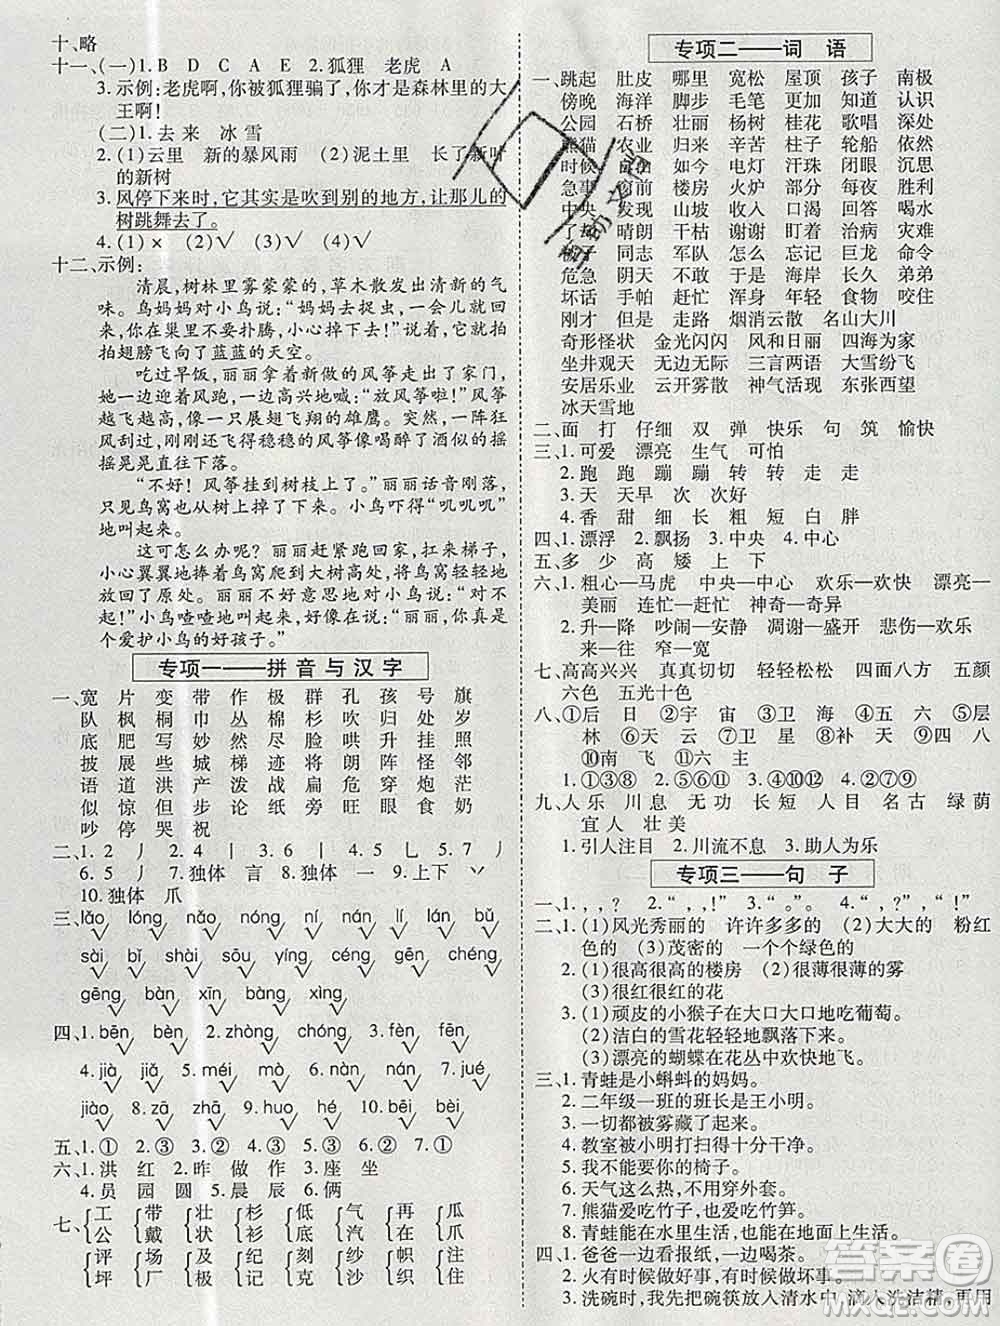 十、略
十一、(一)1. B D C A E 2. 狐狸 老虎 A
3. 示例:老虎啊,你被狐狸骗了,你才是森林里的大
王啊!
(二)1. 去 来 冰 雪
2. (1)云里 新的暴风雨 (2)泥土里 长了新叶
的新树
3. 风停下来时,它其实是吹到别的地方,让那儿的
树跳舞去了。
4. (1)× (2)√ (3)√ (4)√
十二、示例:
清晨,树林里雾蒙蒙的,草木散发出清新的气
味。鸟妈妈对小鸟说:“妈妈去捉虫,一会儿就回来,
你在巢里不要扑腾,小心掉下去!”说着,它就拍
拍翅膀飞向了蓝蓝的天空。
吃过早饭,丽丽拿着新做的风筝走出了家门,
她一边放飞,一边高兴地喊着:“放风筝啦!”风筝
越飞越高,像一只展翅飞翔的雄鹰。突然,一阵狂
风刮过,刚刚还飞得稳稳的风筝像喝醉了酒似的摇
摇晃晃直往下落。
“不好!风筝挂到树枝上了。”丽丽话音刚落,
只见鸟窝也从树上掉了下来。小鸟吓得“叽叽叽”
地叫起来。
这可怎么办呢?丽丽赶紧跑回家,扛来梯子,
小心翼翼地捧着鸟窝爬到大树高处,将鸟窝轻轻地
放回了原处。丽丽不好意思地对小鸟说:“对不
起!”小鸟喳喳地叫着,像在说:“没关系,你真是
个爱护小鸟的好孩子。”
专项一——拼音与汉字
一、宽 片 变 带 作 极 群 孔 孩 号 旗
队 枫 桐 巾 丛 棉 杉 吹 归 处 岁
底 肥 写 妙 然 尽 脸 哄 升 挂 照
披 展 些 城 梯 迹 将 朗 阵 怪 邻
语 道 洪 产 泼 战 扁 危 穿 炮 茫
似 惊 但 步 论 纸 旁 旺 眼 食 奶
吵 停 哭 祝
二、1. 2 丿 2. 4 丨 3. 6 一 4. 5 乚 5. 7 丿
6. 5 丿 7. 独体 言 8. 独体 一 9. 上下 灬
10. 独体 爪
三、lǎo lóng náo nóng ní jí lán bǔ
sài bī sāi sōu yíng céng gēn chéng
gēng bàn xīn bàng xìng
四、1. bēn bèn 2. zhòng chóng 3. fèn fēn
4. jià jiǎ 5. hái huán 6. méi mò 7. jué
jiào 8. zā zhā 9. hā há 10. bēi bèi
五、1. ① 2. ③ 3. ② 4. ② 5. ① 6. ② 7. ①
六、1. 洪 红 2. 昨 做 作 3. 座 坐
4. 员 园 圆 5. 晨 辰 6. 俩
七、{工 {带 {壮 {杉 {低 {气 {再 {瓜
公 戴 状 衫 底 汽 在 爪
{评 {场 {厂
坪 {帜 {注
专项二——词 语
一、跳起 肚皮 哪里 宽松 屋顶 孩子 南极
傍晚 海洋 脚步 毛笔 更加 知道 认识
公园 石桥 壮丽 杨树 桂花 歌唱 深处
熊猫 农业 归来 辛苦 柱子 轮船 沉思
时候 如今 电灯 汗珠 闭眼 沉思
急事 窗前 楼房 火炉 部分
中央 发现 山坡 收入 口渴 喝水
了却 晴朗 干枯 谢谢 盯着 治病 灾难
同志 军队 忘记 巨龙 命令
危急 阴天 不久 长久 弟弟
坏话 手帕 赶忙 浑身 年轻 食物 咬住
刚才 但是 走路 烟消云散 名山大川
奇形怪状 金光闪闪 风和日丽 四海为家
坐井观天 无边无际 三言两语 大雪纷飞
安居乐业 云开雾散 神气活现 东张西望
冰天雪地
二、面 打 仔细 双 弹 快乐 句 筑 愉快
三、1. 可爱 漂亮 生气 可怕
2. 跑 跑 蹦 蹦 转 转 走 走
3. 天 天早 次 次好
4. 香 甜 细 长 粗 短 白 胖
四、1. 漂浮 2. 飘扬 3. 中央 4. 中心
五、多 少 高 矮 上 下
六、1. 粗心—马虎 中央—中心 欢乐—欢快 漂亮—
美丽 连忙—赶忙 神奇—奇异
2. 升—降 吵闹—安静 凋谢—盛开 悲伤—欢乐
来—往 窄—宽
七、高高兴兴 真真切切 轻轻松松 四面八方 五颜
六色 五光十色
八、①后 日 ②宇 宙 ③卫 海 ④五 六 ⑤层
林 ⑥天 云 ⑦卫 星 ⑧ ⑨四 八
⑩南 飞 ⑪六 主
1. ①③⑧ 2. ⑤⑥⑪ 3. ④⑩⑫ 4. ②⑦⑨
九、人乐 川息 无功 长短 人目 名古 绿荫
宜人 壮美
1. 引人注目 2. 川流不息 3. 助人为乐
专项三——句 子
一、1. , , ? 2. “ , , !” 3. “ 。”。 4. “ , ?” “ , !”
二、1. (1)风光秀丽的 许许多多的 (2)大大的 粉红
色的 (3)茂密的 一个个绿色的
2. (1)很高很高的楼房 (2)很薄很薄的雾
(3)很红很红的花
3. (1)顽皮的小猴子在大口大口地吃葡萄。
(2)洁白的雪花轻轻地飘落下来。
(3)漂亮的蝴蝶在花丛中欢快地飞。
三、1. 青蛙是小蝌蚪的妈妈。
2. 二年级一班的班长是王小明。
3. 一切都被雾藏了起来。
4. 教室被小明打扫得十分干净。
5. 我不能玩你的椅子。
6. 天气这么冷,不能不穿外套。
7. 熊猫爱吃竹子,也爱吃竹笋。
8. 青蛙能在水里生活,也能在地面上生活。
四、1. 爸爸一边看报纸,一边喝茶。
2. 火有时候做好事,有时候做坏事。
3. 洗碗时,我先把碗筷放入清水中,滴入洗洁精,再用
答案圈